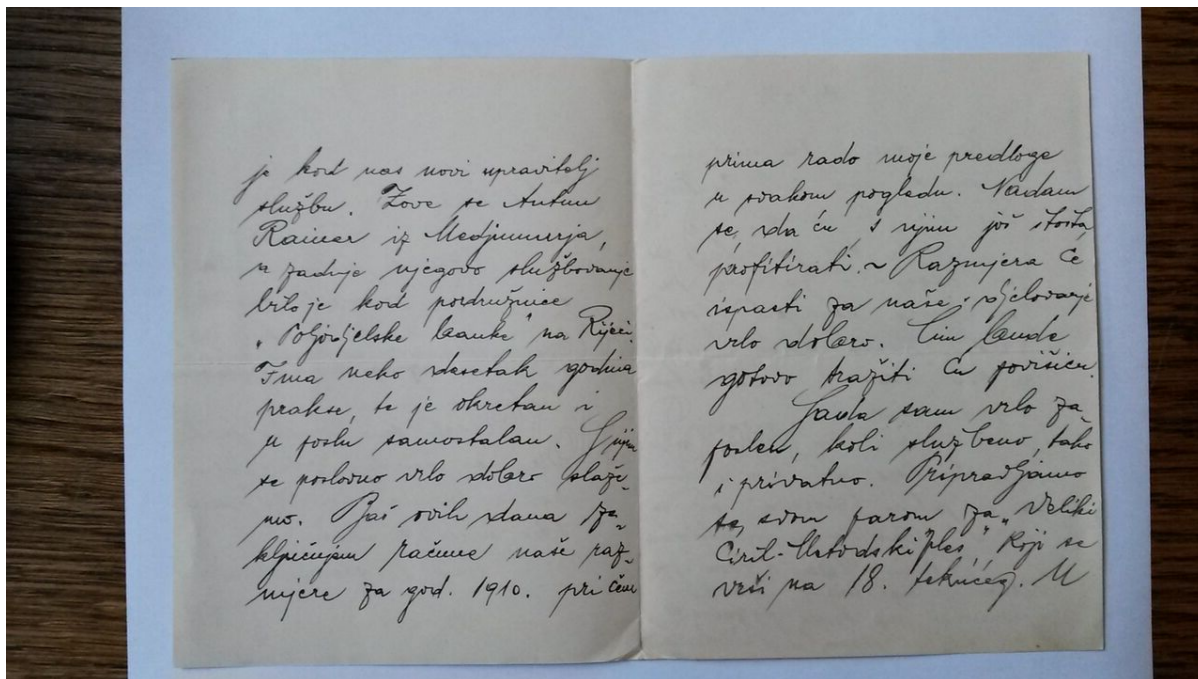 je kod nas novi upravitelj
službu. Zove se Antun
Rainer iz Medjumurja,
a zadnje njegovo službovanje
bilo je kod područnice
„Poljodjelske banke" na Rijeci.
Ima neko desetak godina
prakse, te je okretan i
u poslu samostalan. S njim
se poslovno vrlo dobro slaže-
mo. Baš ovih dana za-
ključujem račune naše raz-
mjere za god. 1910. pri čem
prima rado moje predloge
u svakom pogledu. Nadam
se, da ću s njim još štošta
profitirati. ~ Razmjera će
ispasti za naše djelovanje
vrlo dobro. Čim bude
gotovo tražiti ću povišicu.
Sada sam vrlo za-
poslen, koli službeno, tako
i privatno. Pripravljamo
se, svom parom za „Veliki
Ciril-Metodski ples" koji se
vrši na 18. tekućeg. U